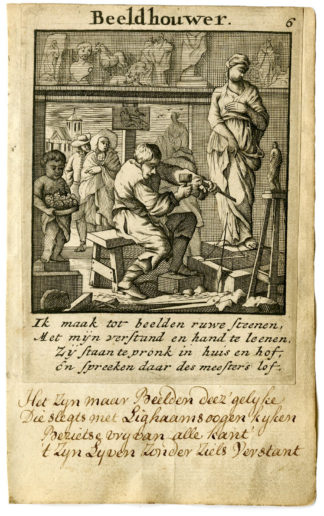 Beeldhouwer.
6
Ik maak tot beelden ruwe steenen,
Met mijn verstand en hand te leenen,
Zij staan te pronk in huis en hof,
En spreeken daar des meesters lof.
Het Zyn maar Beelden deez' gelyke
Die slegts met Lighaams oogen kyken
Beziet se vry van alle kant
't Zyn Lyven Zonder Ziels Verstant